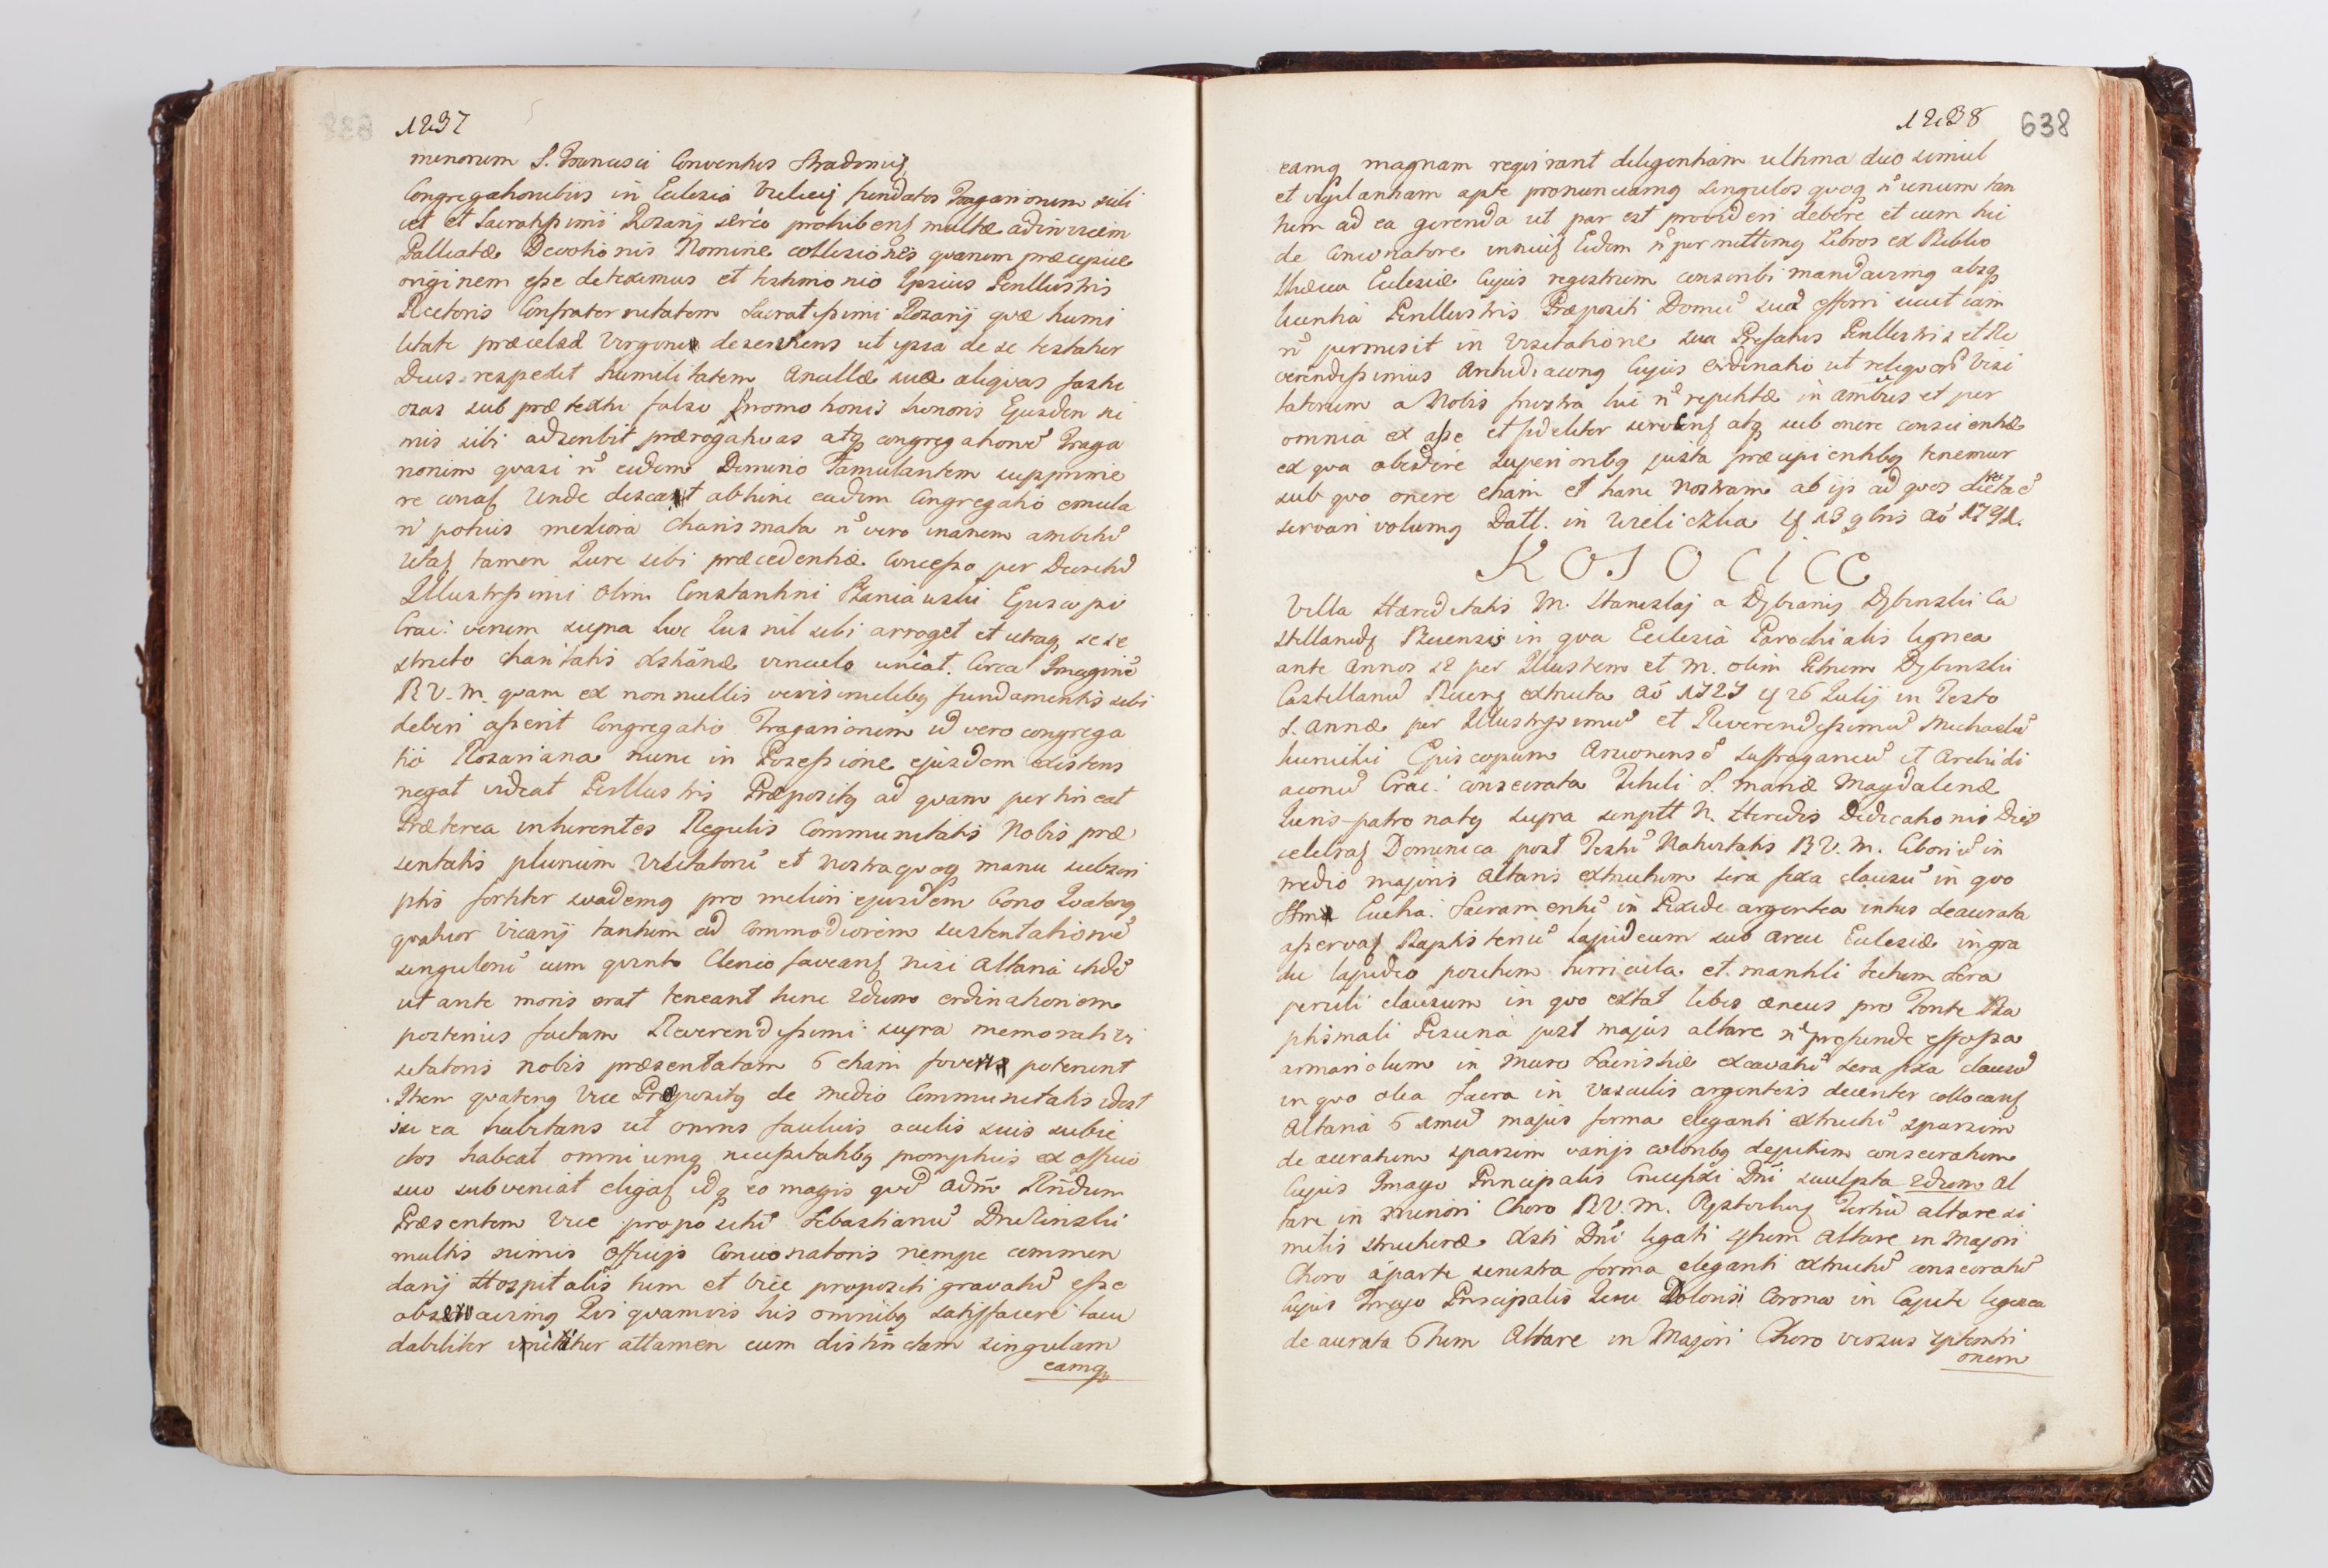 1237
menorum S. Francisci Conventus Stradomiens
Congregationibus in Ecclesia Vieliciens fundatos Tragarionum scili
cet et Sacratissimi Rosarij serio prohibens multæ adinvicem
Palliatæ Devotionis Nomine collisiones quarum præcipue
originem esse deteximus et testimonio Ipsius Perillustris
Rectoris Confraternitatem Sacratissimi Rosarij quæ humi
litate præcelsæ Virginis deserviens ut ipsa de se testatur
Deus respexit humilitatem Ancillæ suæ aliquas fastu
osas sub prætextu falso promotionis honoris Ejusdem ni
mis sibi adscribit prærogativas atq congregationē Traga
rionum quasi nō eidem Domino famulantem supprime
re conat Unde discat abhinc eadem Congregatio emula
ri potius meliora charismata nō vero inanem ambitū
Utat tamen Jure sibi præcedentiæ concesso per Decretū
Illustrissimi olim Constantini Szaniawski Episcopi
Crac: verum supra hoc Jus nil sibi arroget et utraq sese
stricto charitatis Xstianæ vinculo uniat. Circa Imaginē
B V. M. quam ex nonnullis verisimilibq fundamentis sibi
deberi asserit Congregatio Tragarionum id vero congrega
tio Rosariana nunc in Possessione ejusdem existens
negat videat Perillustris Præpositq ad quam pertineat
Præterea inherentes Regulis Communitatis Nobis præ
sentatis plurium Visitatorū et nostra quoq manu subscri
ptis fortiter suademq pro meliori ejusdem bono Quatenq
quatuor Vicarij tantum ad Commodiorem sustentationē
singulorū cum quinto Clerico foveant nisi Altaria itidē
ut ante moris erat teneant hinc 2dum ordinationem
posterius factam Reverendissimi supra memorati Vi
sitatoris nobis præsentatam 6 etiam foveri poterunt
Item quatenq Vice Præpositq de medio Communitatis idest
in ea habitans ut omnes facilius oculis suis subie
ctos habeat omniumq necessitatibq promptius ex officio
suo subveniat eligat idq eo magis quod adm Rndum
Præsentem Vice propositū Sebastianū Druzinski
multis nimis officijs Concionatoris nempe commen
darij Hospitalis tum et Vice propositi gravatū esse
observavimq Qui quamvis his omnibq satisfacere lau
dabiliter nititur attamen cum distinctam singulam
eamq
1238 638
eamq magnam requirant diligentiam ultima duo simul
et vigilantiam apte pronunciamq singulos quoq nō unum tan
tum ad ea gerenda ut par est provideri debere et cum hic
de Concionatore innuit Eidem nō permittimq libros ex Biblio
theca Ecclesiæ cujus regestrum conscribi mandavimq absq
licentia Perillustris Præpositi Domū suā efferri sicut iam
nō permisit in Visitatione sua Præfatus Perillustris et Re
verendissimus Archidiaconq cujus ordinatio ut reliquorū Visi
tatorum a Nobis frustra hic nō repetitæ in ambus et per
omnia ex asse et fideliter servent atq sub onere conscientiæ
ex qua obedire Superioribq justa præcipientibq tenemur
sub quo onere etiam et hanc nostram ab ijs ad quos dirctæ
servari volumq Datt. in Wieliczka d 13 9bris Ao 1791.
KOSOCICE
Villa Hæreditatis M. Stanislaj a Dębianij Dębinski Ca
stellanids Bieczensis in qua Ecclesia Parochialis lignea
ante annos 12 per Illustrem et M. olim Petrum Dębinski
Castellanū Biecens extructa Ao 1727 d 26 Julij in Festo
S. Annæ per Illustrissimū et Reverendissimū Michaelū
Kunicki Episcopum Arsionensē Suffraganeū et Archidi
aconū Crac: consecrata Tituli S. Mariæ Magdalenæ
Juris-patronatq supra scriptt M. Heredis Dedicationis Dies
celebrat Dominica post Festū Nativitatis B V. M. Ciboriū in
medio majoris Altaris extructum sera fixa clausū in quo
SSmū Eucha: Sacramentū in Pixide argentea intus deaurata
asservat Baptisteriū lapideum sub arcu Ecclesiæ in gra
du lapideo positum turricula et mantili tectum sera
peruli clausum in quo extat lebes æneus pro Fonte Ba
ptismali Piscina post majus altare nō profunde effossa
armariolum in muro Sacristiæ excavatū sera fixa clausū
in quo olea Sacra in vasculis argenteis decenter collocant
Altaria 6 1mū majus forma eleganti extructū sparsim
de auratum sparsim varijs coloribq depictum consecratum
Cujus Imago Principalis Crucifixi Dni sculpta 2dum al
tare in minori Choro B V. M. Częstochov Tertiū altare si
milis structuræ Xsti Dni ligati 4tum altare in Majori
Choro á parte sinistra forma eleganti extructū consecratū
Cujus Imago Principalis Jesu Dolorosi Corona in Capite lignea
de aurata 5tum Altare in Majori Choro versus septentri
onem